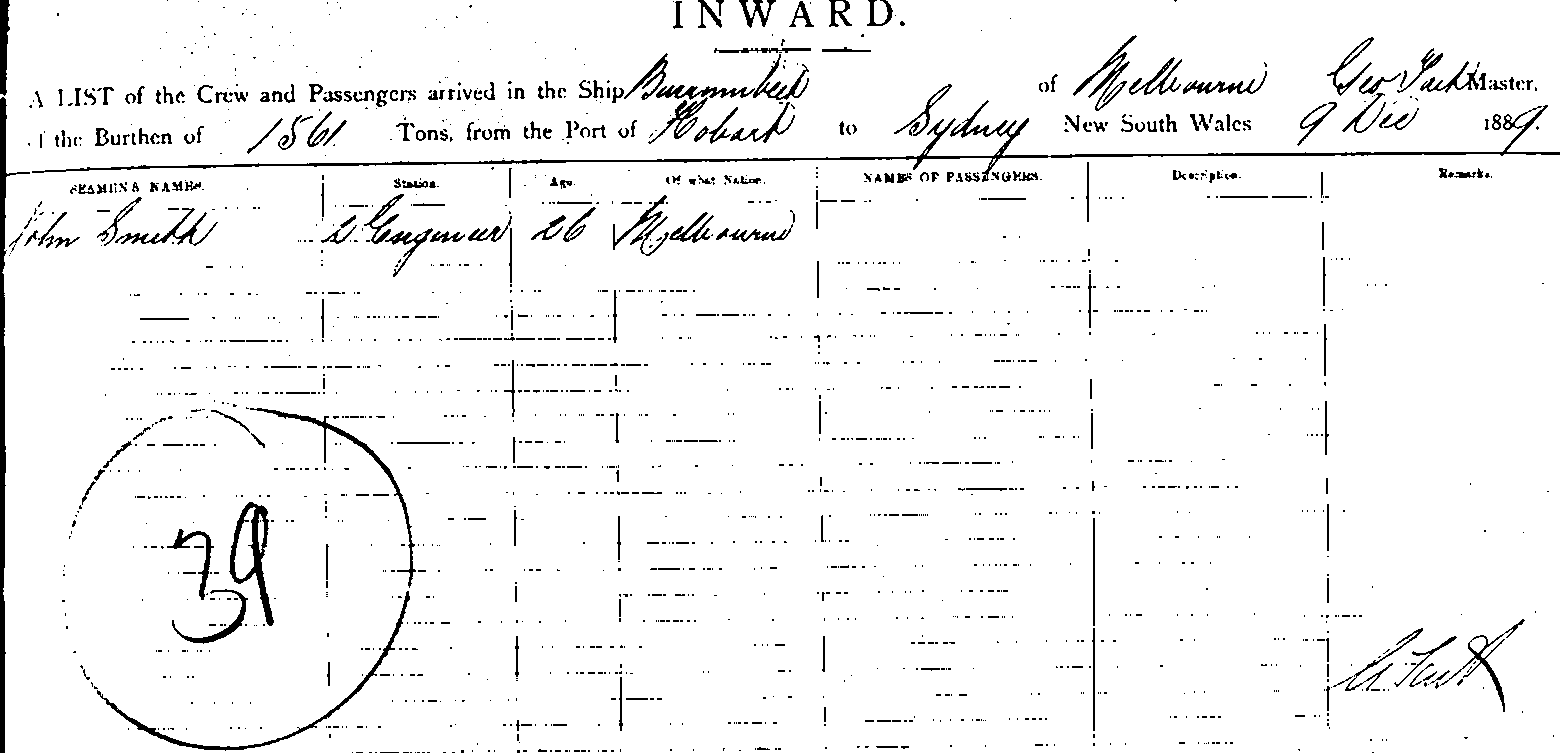 INWARD.
A LIST of the Crew and Passengers arrived in the Ship Burrumbeet of Melbourne Geo Master,
of the Burthen of 1561 Tons, from the Port of Hobart to Sydney New South Wales 9 Dec 1889.
SEAMENS NAMES. Station. Age. Of what Nation. NAMES OF PASSENGERS. Description. Remarks.
John Smith 2 Engineer 26 Melbourne
39